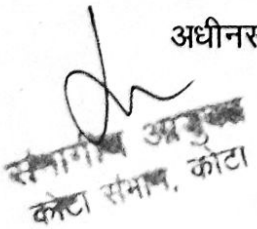 अधीनस
संभागीय आयुक्त
कोटा संभाग, कोटा